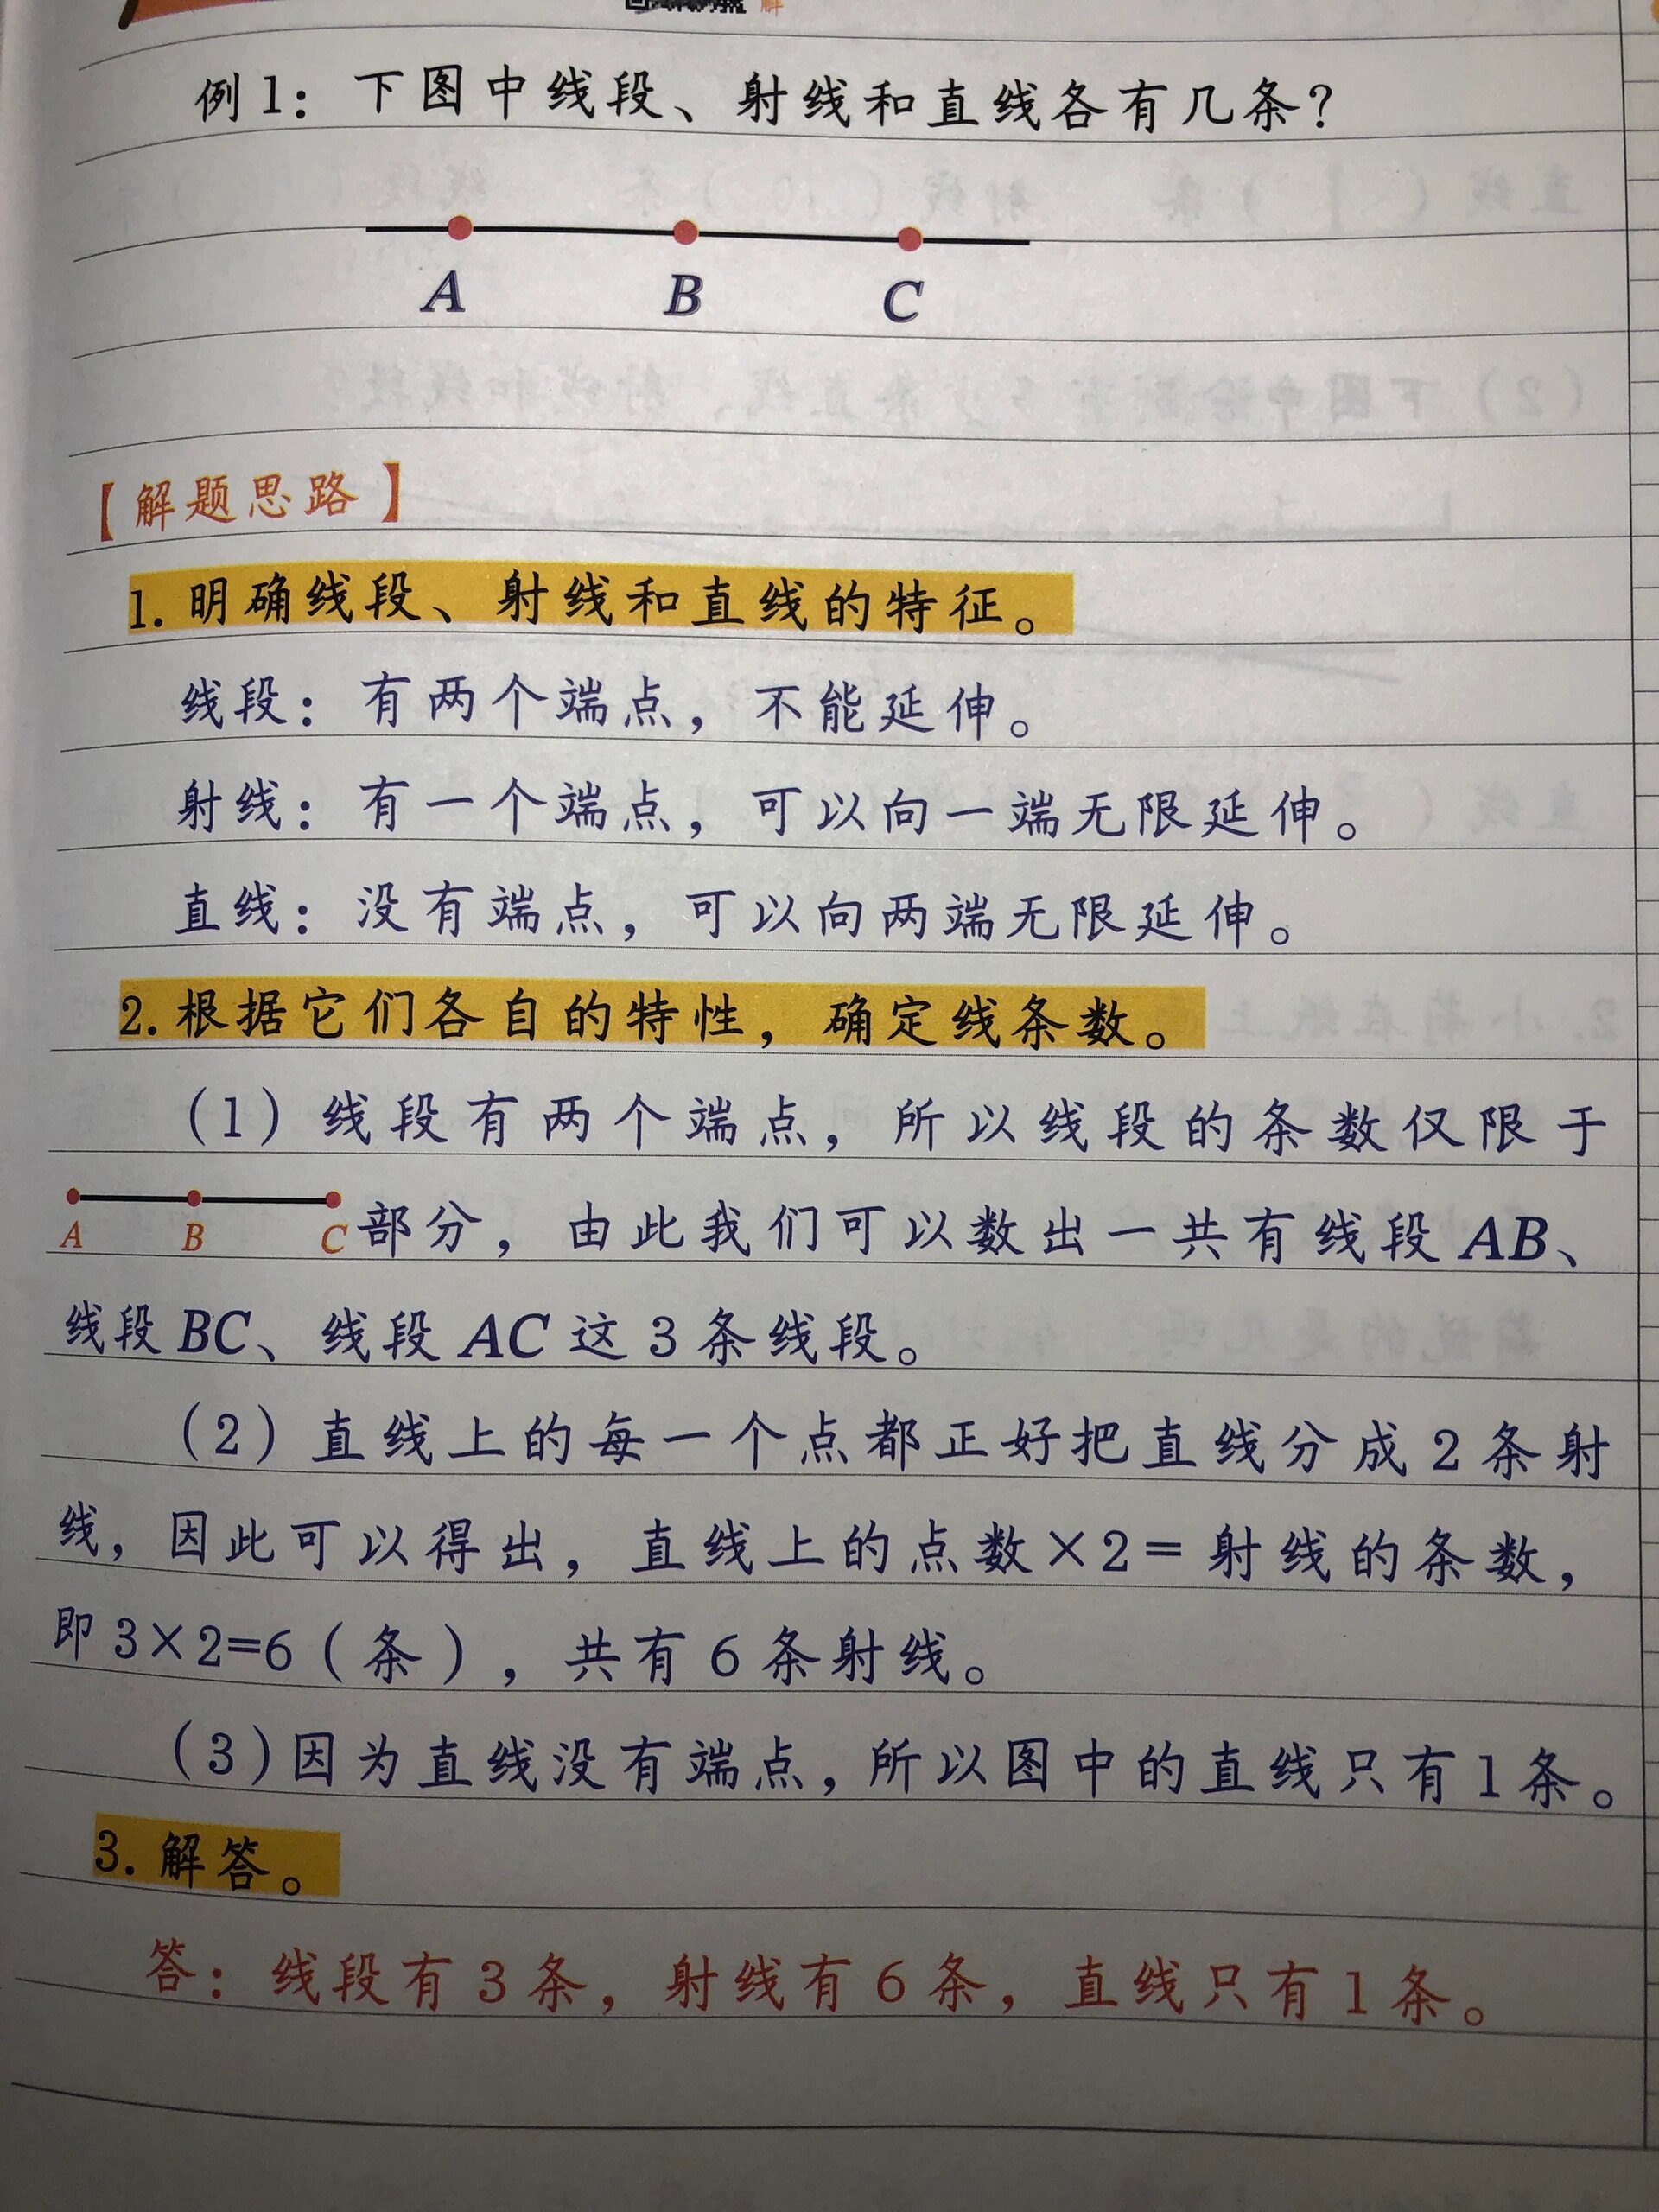 解
例1：下图中线段、射线和直线各有几条？
A B C
【解题思路】
1.明确线段、射线和直线的特征。
线段：有两个端点，不能延伸。
射线：有一个端点，可以向一端无限延伸。
直线：没有端点，可以向两端无限延伸。
2.根据它们各自的特性，确定线条数。
（1）线段有两个端点，所以线段的条数仅限于
A B C 部分，由此我们可以数出一共有线段AB、
线段BC、线段AC这3条线段。
（2）直线上的每一个点都正好把直线分成2条射
线，因此可以得出，直线上的点数×2=射线的条数，
即3×2=6（条），共有6条射线。
（3）因为直线没有端点，所以图中的直线只有1条。
3.解答。
答：线段有3条，射线有6条，直线只有1条。